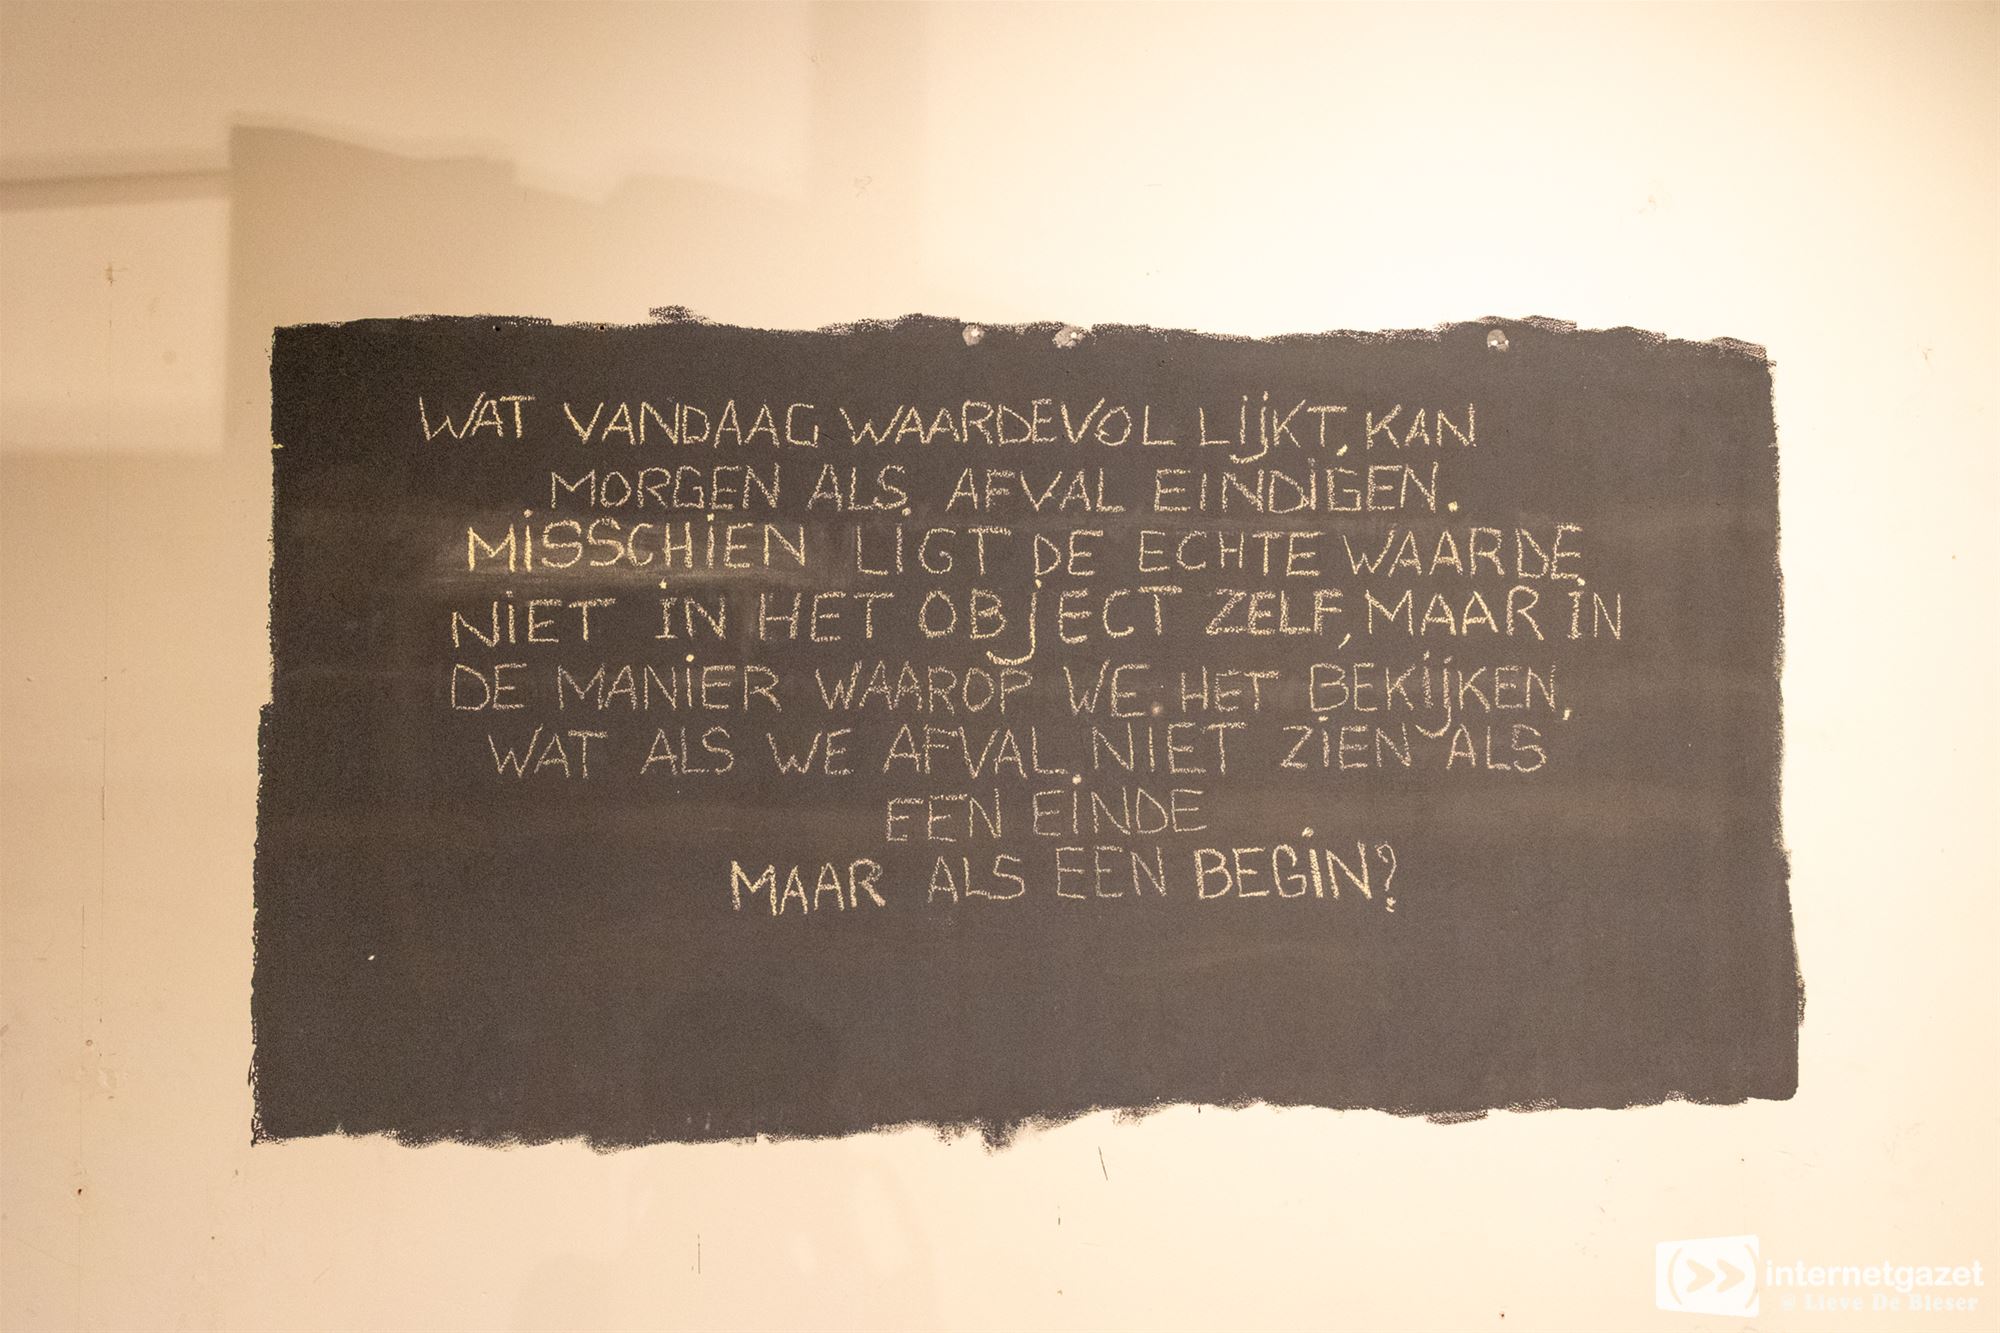 WAT VANDAAG WAARDEVOL LIJKT, KAN
MORGEN ALS AFVAL EINDIGEN.
MISSCHIEN LIGT DE ECHTE WAARDE
NIET IN HET OBJECT ZELF, MAAR IN
DE MANIER WAAROP WE HET BEKIJKEN,
WAT ALS WE AFVAL NIET ZIEN ALS
EEN EINDE
MAAR ALS EEN BEGIN?
internetgazet
@ Lieve De Bleser